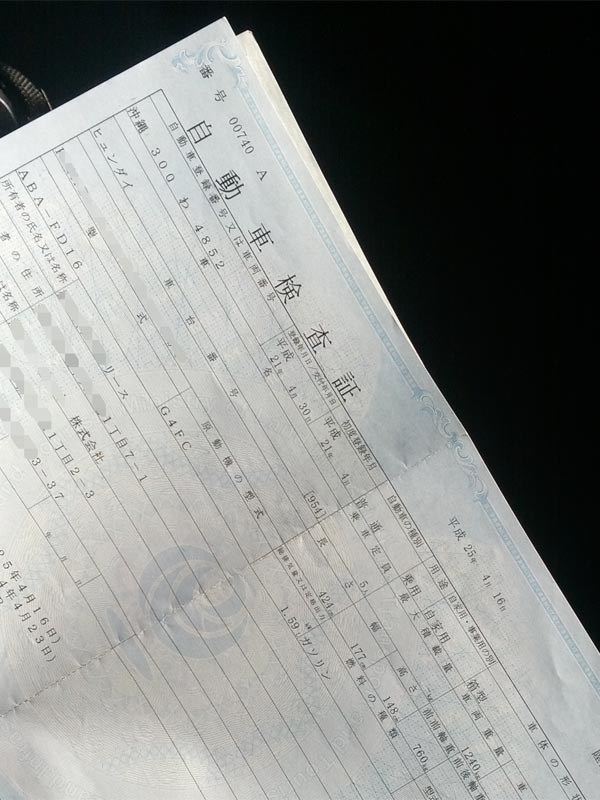 番号 00740 A
自動車検査証
平成 25年 4月 16日
自動車登録番号又は車両番号
登録年月日/交付年月日
初度登録年月
自動車の種別
用途
自家用・事業用の別
車体の形状
沖縄 300 わ 4852
平成 21年 4月 30日
平成 21年 4月
普通
乗用
自家用
箱型
車名
乗車定員
最大積載量
車両重量
ヒュンダイ
[954]
5人
1240kg
車台番号
長さ
幅
高さ
前前軸重
前後軸重
424cm
177cm
148cm
760kg
型式
原動機の型式
総排気量又は定格出力
燃料の種類
ABA-FD16
G4FC
1.59
ガソリン
所有者の氏名又は名称
リース 株式会社
者の住所
1丁目7-1
1丁目2-3
3-37
年 月 日
25年4月16日)
年4月23日)